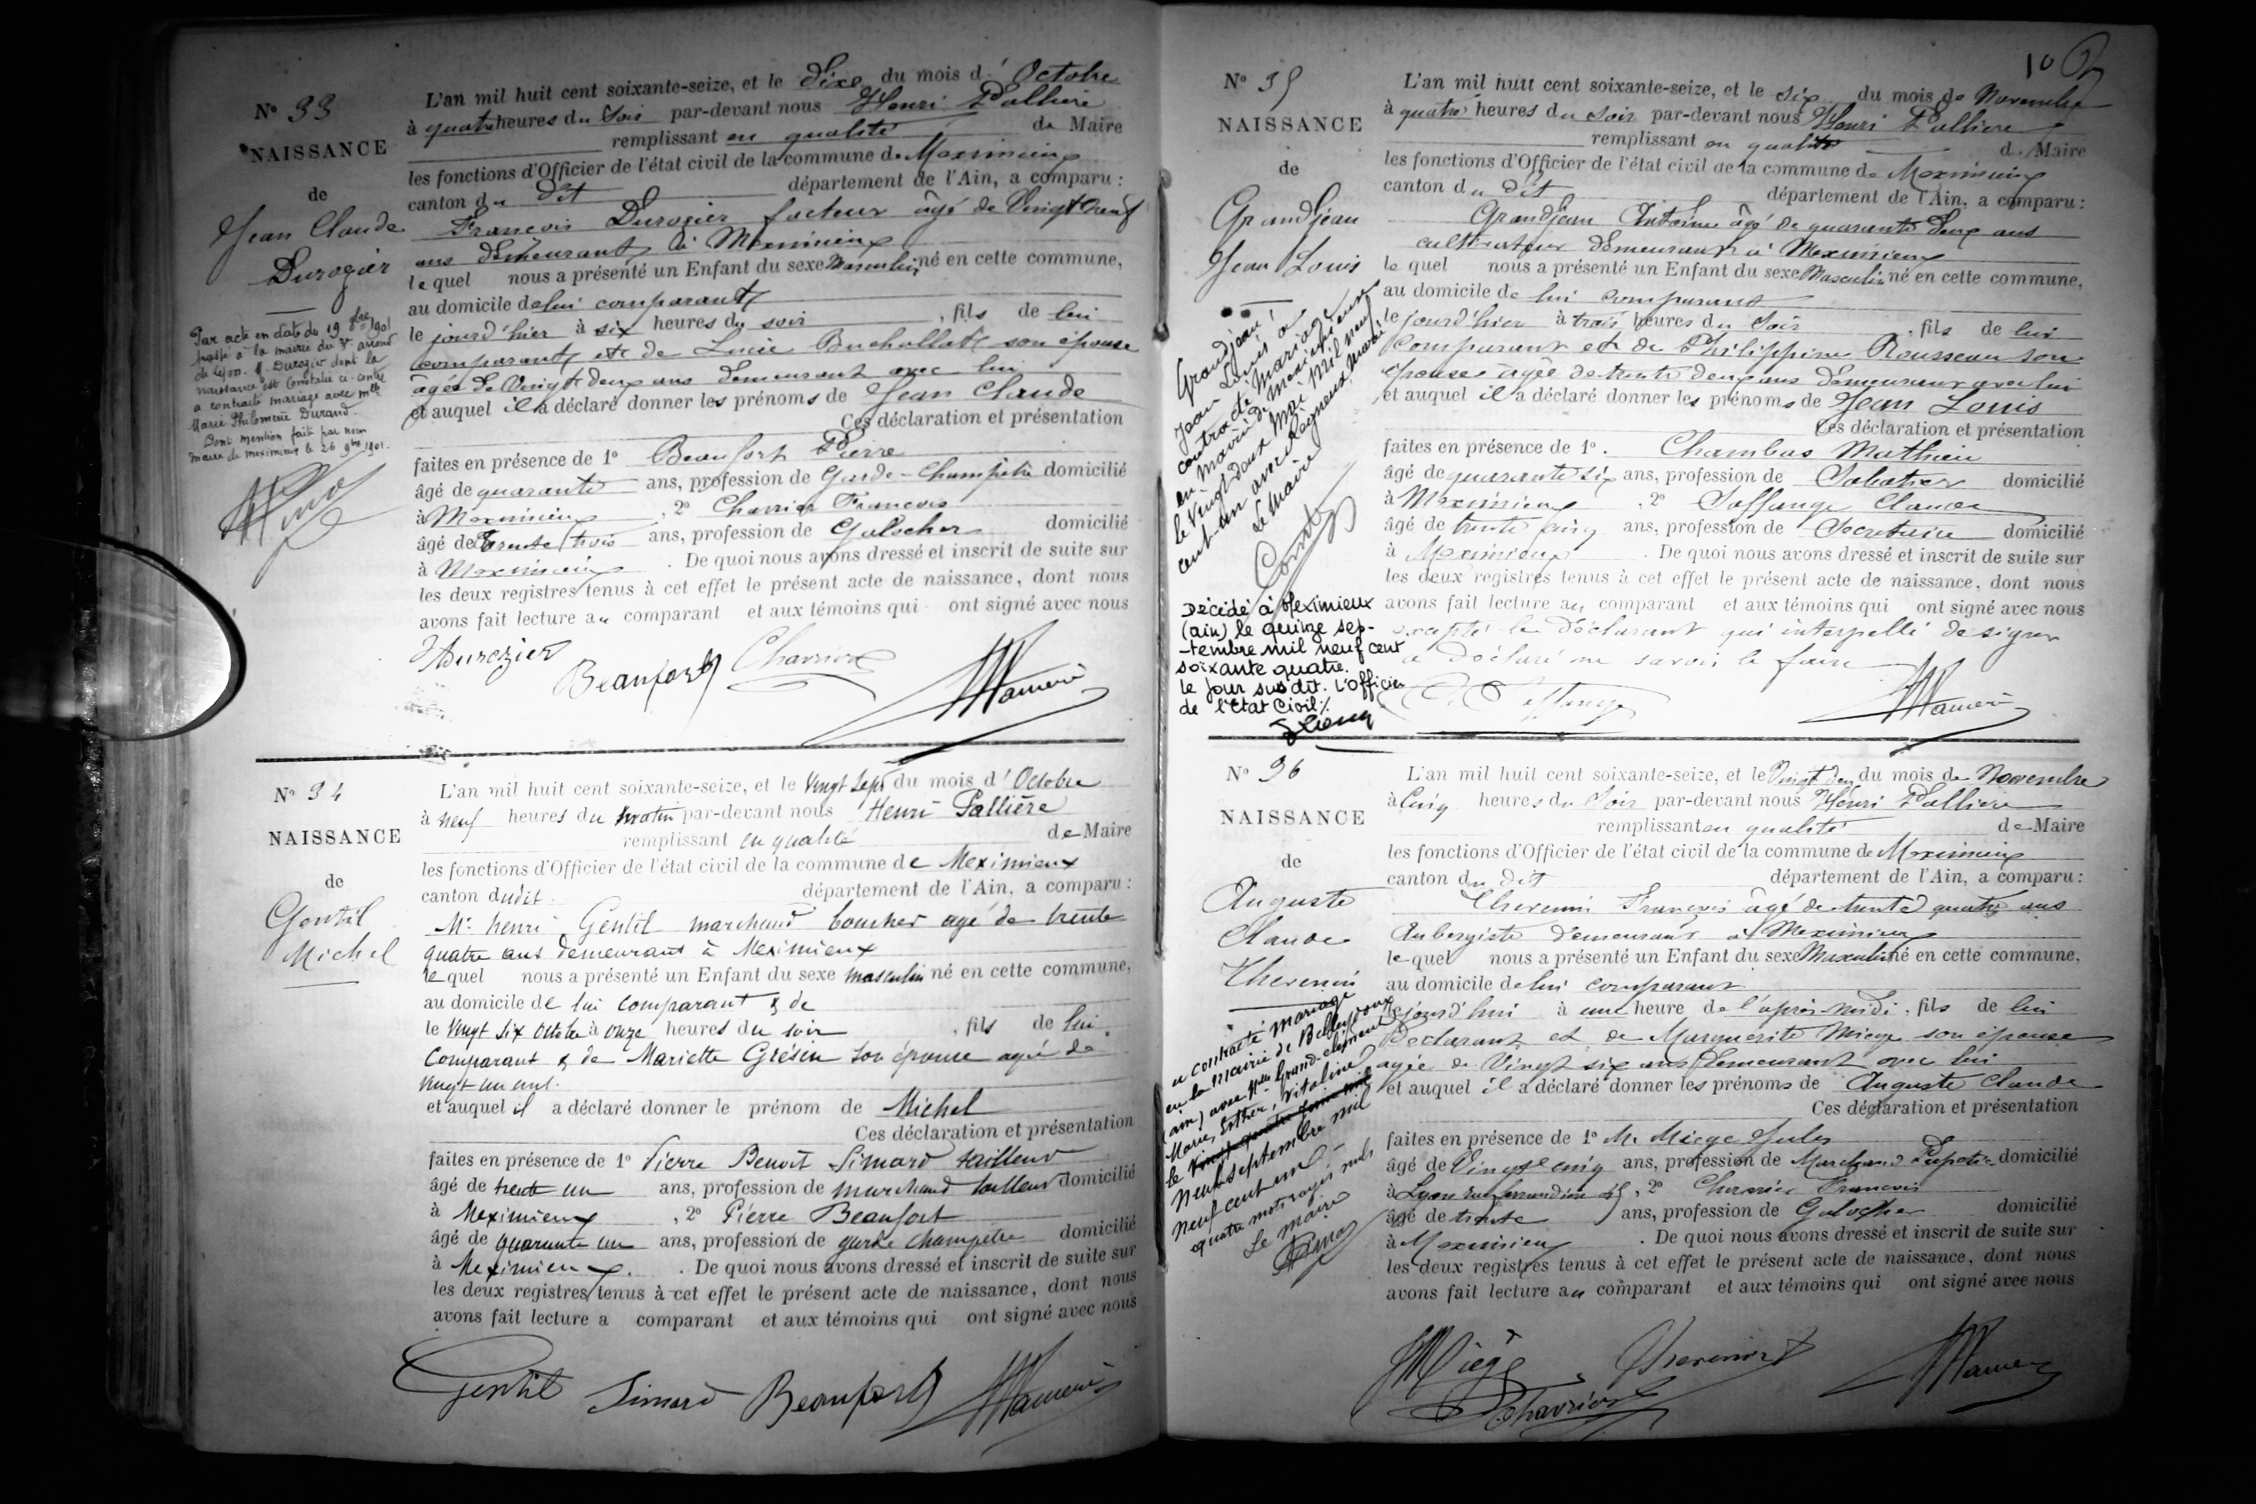 N° 33
NAISSANCE
de
Jean Claude
Durozier
Par acte en date du 19 9bre 1901
passé à la mairie du Vᵉ arrond
de Lyon. M. Durozier dont la
naissance est constatée ci-contre
a contracté mariage avec Mlle
Marie Philomène Durand.
Dont mention faite par nous
maire de Meximieux le 26 9bre 1901.
L'an mil huit cent soixante-seize, et le dixe du mois d' Octobre
à quatre heures du Soir par-devant nous Henri Pallière
remplissant en qualité de Maire
les fonctions d'Officier de l'état civil de la commune de Meximieux
canton du dit département de l'Ain, a comparu :
François Durozier facteur âgé de Vingt neuf
ans demeurant à Meximieux
le quel nous a présenté un Enfant du sexe Masculin né en cette commune,
au domicile de lui comparant
le jourd'hier à six heures du soir , fils de lui
comparant et de Lucie Buchollat son épouse
âgée de Vingt deux ans demeurant avec lui
et auquel il a déclaré donner les prénoms de Jean Claude
Ces déclaration et présentation
faites en présence de 1° Beaufort Pierre
âgé de quarante ans, profession de Garde-Champêtre domicilié
à Meximieux , 2° Charrier François
âgé de Trente trois ans, profession de Galocher domicilié
à Meximieux . De quoi nous avons dressé et inscrit de suite sur
les deux registres tenus à cet effet le présent acte de naissance, dont nous
avons fait lecture au comparant et aux témoins qui ont signé avec nous
Durozier
Beaufort Charrier
N° 34
NAISSANCE
de
Gentil
Michel
L'an mil huit cent soixante-seize, et le Vingt Sept du mois d' Octobre
à neuf heures du matin par-devant nous Henri Pallière
remplissant en qualité de Maire
les fonctions d'Officier de l'état civil de la commune de Meximieux
canton dudit département de l'Ain, a comparu :
Mr henri Gentil marchand boucher agé de trente
quatre ans demeurant à Meximieux
le quel nous a présenté un Enfant du sexe masculin né en cette commune,
au domicile de lui comparant & de
le Vingt Six Octobre à onze heures du soir , fils de lui
Comparant & de Mariette Grésin son épouse agée de
vingt un ans.
et auquel il a déclaré donner le prénom de Michel
Ces déclaration et présentation
faites en présence de 1° Pierre Benoit Simard tailleur
âgé de trente un ans, profession de marchand tailleur domicilié
à Meximieux , 2° Pierre Beaufort
âgé de quarante un ans, profession de garde champêtre domicilié
à Meximieux. . De quoi nous avons dressé et inscrit de suite sur
les deux registres tenus à cet effet le présent acte de naissance, dont nous
avons fait lecture a comparant et aux témoins qui ont signé avec nous
Gentil Simard Beaufort
10
N° 35
NAISSANCE
de
Grandjean
Jean Louis
Grandjean,
Jean Louis a
contracté mariage
en mairie de Meximieux
le Vingt-deux Mai mil neuf
cent un avec
Le Maire
Décédé à Meximieux
(ain) le quinze sep-
-tembre mil neuf cent
soixante quatre.
le jour sus dit. L'officier
de l'Etat Civil %
L'an mil huit cent soixante-seize, et le six du mois de Novembre
à quatre heures du Soir par-devant nous Henri Pallière
remplissant en qualité de Maire
les fonctions d'Officier de l'état civil de la commune de Meximieux
canton du dit département de l'Ain, a comparu :
Grandjean Antoine âgé de quarante deux ans
cultivateur demeurant à Meximieux
le quel nous a présenté un Enfant du sexe Masculin né en cette commune,
au domicile de lui comparant
le jourd'hier à trois heures du Soir , fils de lui
Comparant et de Philippine Rousseau son
épouse âgée de trente deux ans demeurant avec lui
et auquel il a déclaré donner les prénoms de Jean Louis
Ces déclaration et présentation
faites en présence de 1°. Chambas Mathieu
âgé de quarante six ans, profession de Sabotier domicilié
à Meximieux , 2° Saffange Claude
âgé de trente cinq ans, profession de Secretaire domicilié
à Meximieux . De quoi nous avons dressé et inscrit de suite sur
les deux registres tenus à cet effet le présent acte de naissance, dont nous
avons fait lecture au comparant et aux témoins qui ont signé avec nous
excepté le déclarant qui interpellé de signer
a déclaré ne savoir le faire
N° 36
NAISSANCE
de
Auguste
Claude
Thevenin
a contracté mariage
en la mairie de Bellegarde
(ain) avec Mlle Grand-clément
Marie, Esther, Vitaline
le
Neuf septembre mil
neuf cent un -
quatre mots rayés nuls
Le Maire
L'an mil huit cent soixante-seize, et le Vingt deux du mois de Novembre
à Cinq heures du Soir par-devant nous Henri Pallière
remplissant en qualité de Maire
les fonctions d'Officier de l'état civil de la commune de Meximieux
canton du dit département de l'Ain, a comparu :
Thevenin François âgé de trente quatre ans
Aubergiste demeurant à Meximieux
le quel nous a présenté un Enfant du sexe Masculin né en cette commune,
au domicile de lui comparant
le jourd'hui à une heure de l'après-midi , fils de lui
Déclarant et de Marguerite Miège son épouse
agée de Vingt six ans demeurant avec lui
et auquel il a déclaré donner les prénoms de Auguste Claude
Ces déclaration et présentation
faites en présence de 1° Mr Miege Jules
âgé de Vingt cinq ans, profession de Marchand Papetier domicilié
à Lyon rue Ferrandière 45 , 2° Charrier François
âgé de trente ans, profession de Galocher domicilié
à Meximieux . De quoi nous avons dressé et inscrit de suite sur
les deux registres tenus à cet effet le présent acte de naissance, dont nous
avons fait lecture au comparant et aux témoins qui ont signé avec nous
JMiège Thevenin
Charrier